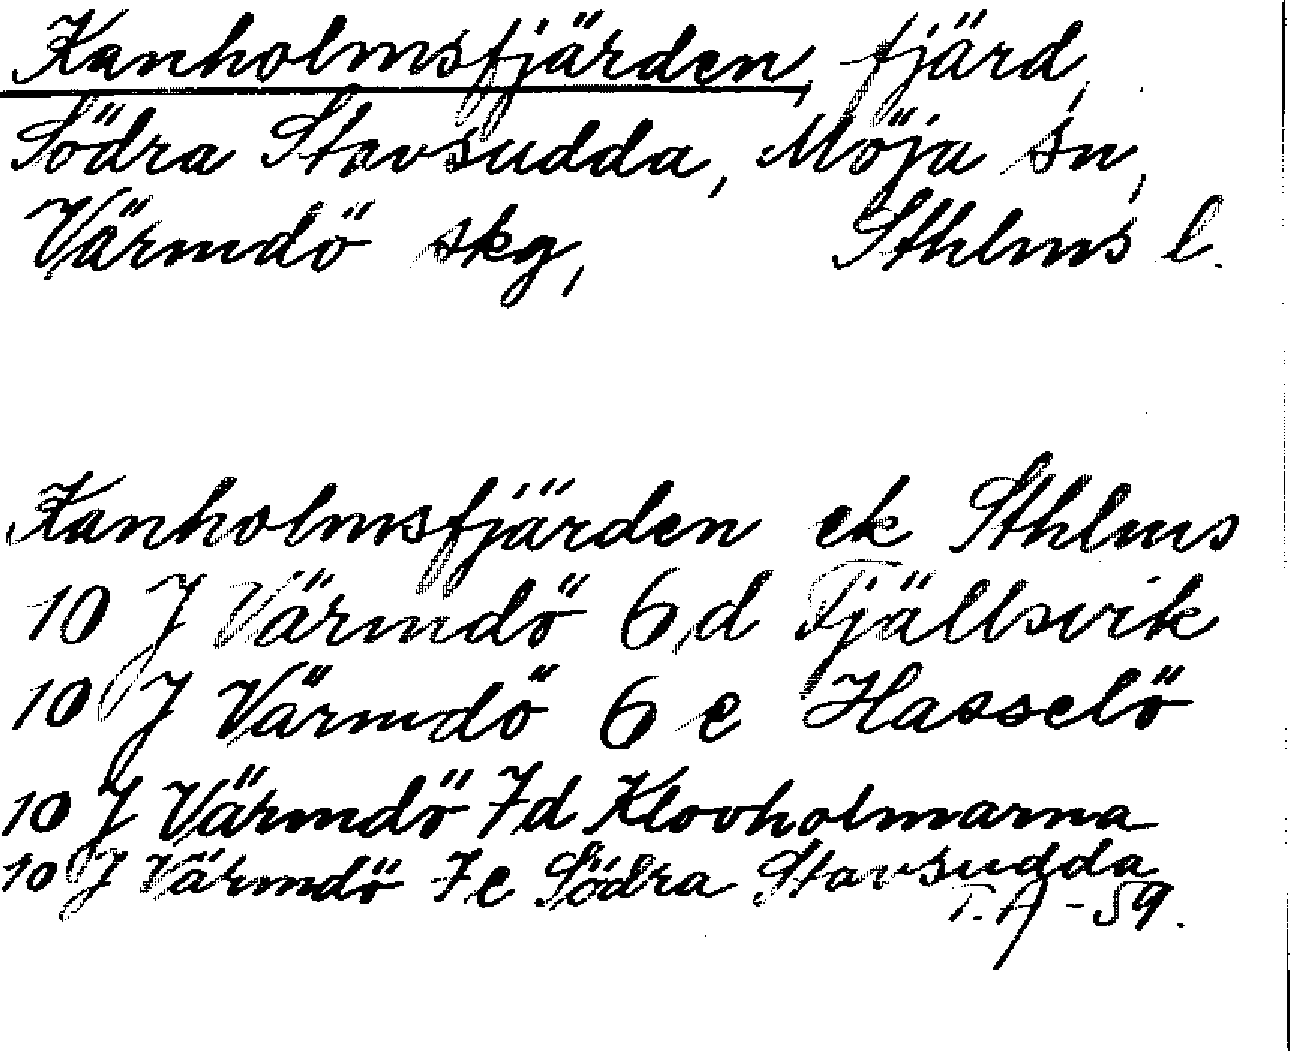 Kanholmsfjärden, fjärd,
Södra Stavsudda, Möja sn,
Värmdö skg, Sthlms l.
Kanholmsfjärden ek Sthlms
10 J Värmdö 6 d Fjällsvik
10 J Värmdö 6 e Hasselö
10 J Värmdö 7d Klovholmarna
10 J Värmdö 7e Södra Stavsudda
T.A -59.